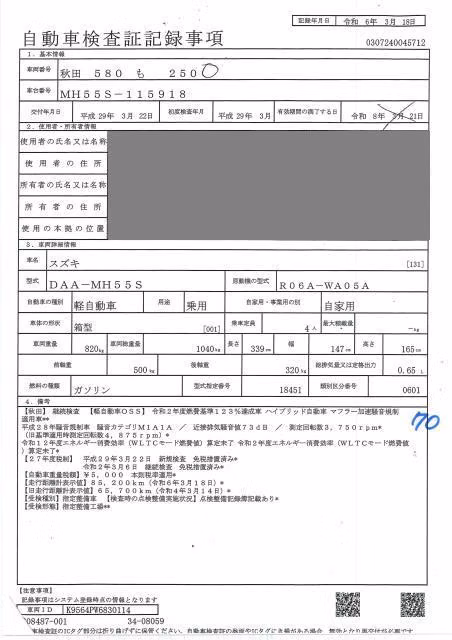 記録年月日 令和 6年 3月 18日
自動車検査証記録事項
0307240045712
1. 基本情報
車両番号 秋田 580 も 250
車台番号 MH55S-115918
交付年月日 平成 29年 3月 22日 初度検査年月 平成 29年 3月 有効期間の満了する日 令和 8年 3月 21日
2. 使用者・所有者情報
使用者の氏名又は名称
使用者の住所
所有者の氏名又は名称
所有者の住所
使用の本拠の位置
3. 車両詳細情報
車名 スズキ [131]
型式 DAA-MH55S 原動機の型式 R06A-WA05A
自動車の種別 軽自動車 用途 乗用 自家用・事業用の別 自家用
車体の形状 箱型 [001] 乗車定員 4人 最大積載量 -kg
車両重量 820kg 車両総重量 1040kg 長さ 339cm 幅 147cm 高さ 165cm
前軸重 500kg 後軸重 320kg 総排気量又は定格出力 0.65 L
燃料の種類 ガソリン 型式指定番号 18451 類別区分番号 0601
4. 備考
【秋田】 継続検査 【軽自動車OSS】 令和2年度燃費基準123%達成車 ハイブリッド自動車 マフラー加速騒音規制
適用車**
平成28年騒音規制車 騒音カテゴリM1A1A / 近接排気騒音値73dB / 測定回転数3,750rpm*
(旧基準適用時測定回転数4,875rpm)**
令和12年度エネルギー消費効率(WLTCモード燃費値)算定未了 令和2年度エネルギー消費効率(WLTCモード燃費値
)算定未了*
【27年度税制】 平成29年3月22日 新規検査 免税措置済み*
令和2年3月6日 継続検査 免税措置済み**
【自動車重量税額】¥5,000 本則税率適用*
【走行距離計表示値】85,200km(令和6年3月18日)*
【旧走行距離計表示値】65,700km(令和4年3月14日)*
【受検種別】指定整備車 【検査時の点検整備実施状況】点検整備記録簿記載あり*
【受検形態】指定整備工場**
70
【注意事項】
記録事項はシステム登録時点の情報となります
車両ID K9564PW6830114
08487-001 34-08059